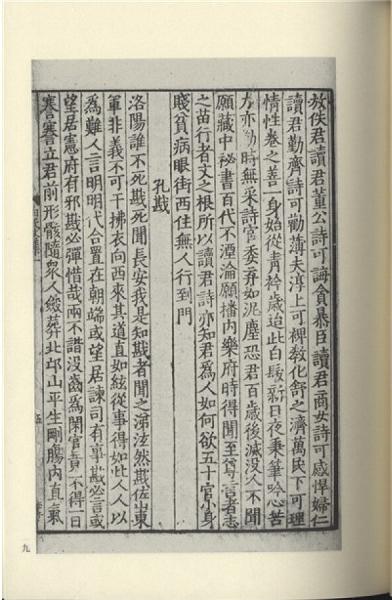 放佚君讀君董公詩可誨貪暴臣讀君商女詩可感悍婦仁
讀君勤齊詩可勸薄夫淳上可裨教化舒之濟萬民下可理
情性卷之善一身始從青衿歲迨此白髮新日夜秉筆吟心苦
力亦勤時無采詩官委弃如泥塵恐君百歲後滅没人不聞
願藏中祕書百代不湮淪願播内樂府時得聞至尊言者志
之苗行者文之根所以讀君詩亦知君爲人如何欲五十官小身
賤貧病眼街西住無人行到門
孔戡
洛陽誰不死戡死聞長安我是知戡者聞之涕泫然戡佐山東
軍非義不可干拂衣向西來其道直如絃從事得如此人人以
為難人言明明代合置在朝端或望居諫司有事戡必言或
望居憲府有邪戡必彈惜哉兩不諧没齒爲閑官竟不得一日
謇謇立君前形骸隨衆人斂葬北邙山平生剛腸内直氣
五
九